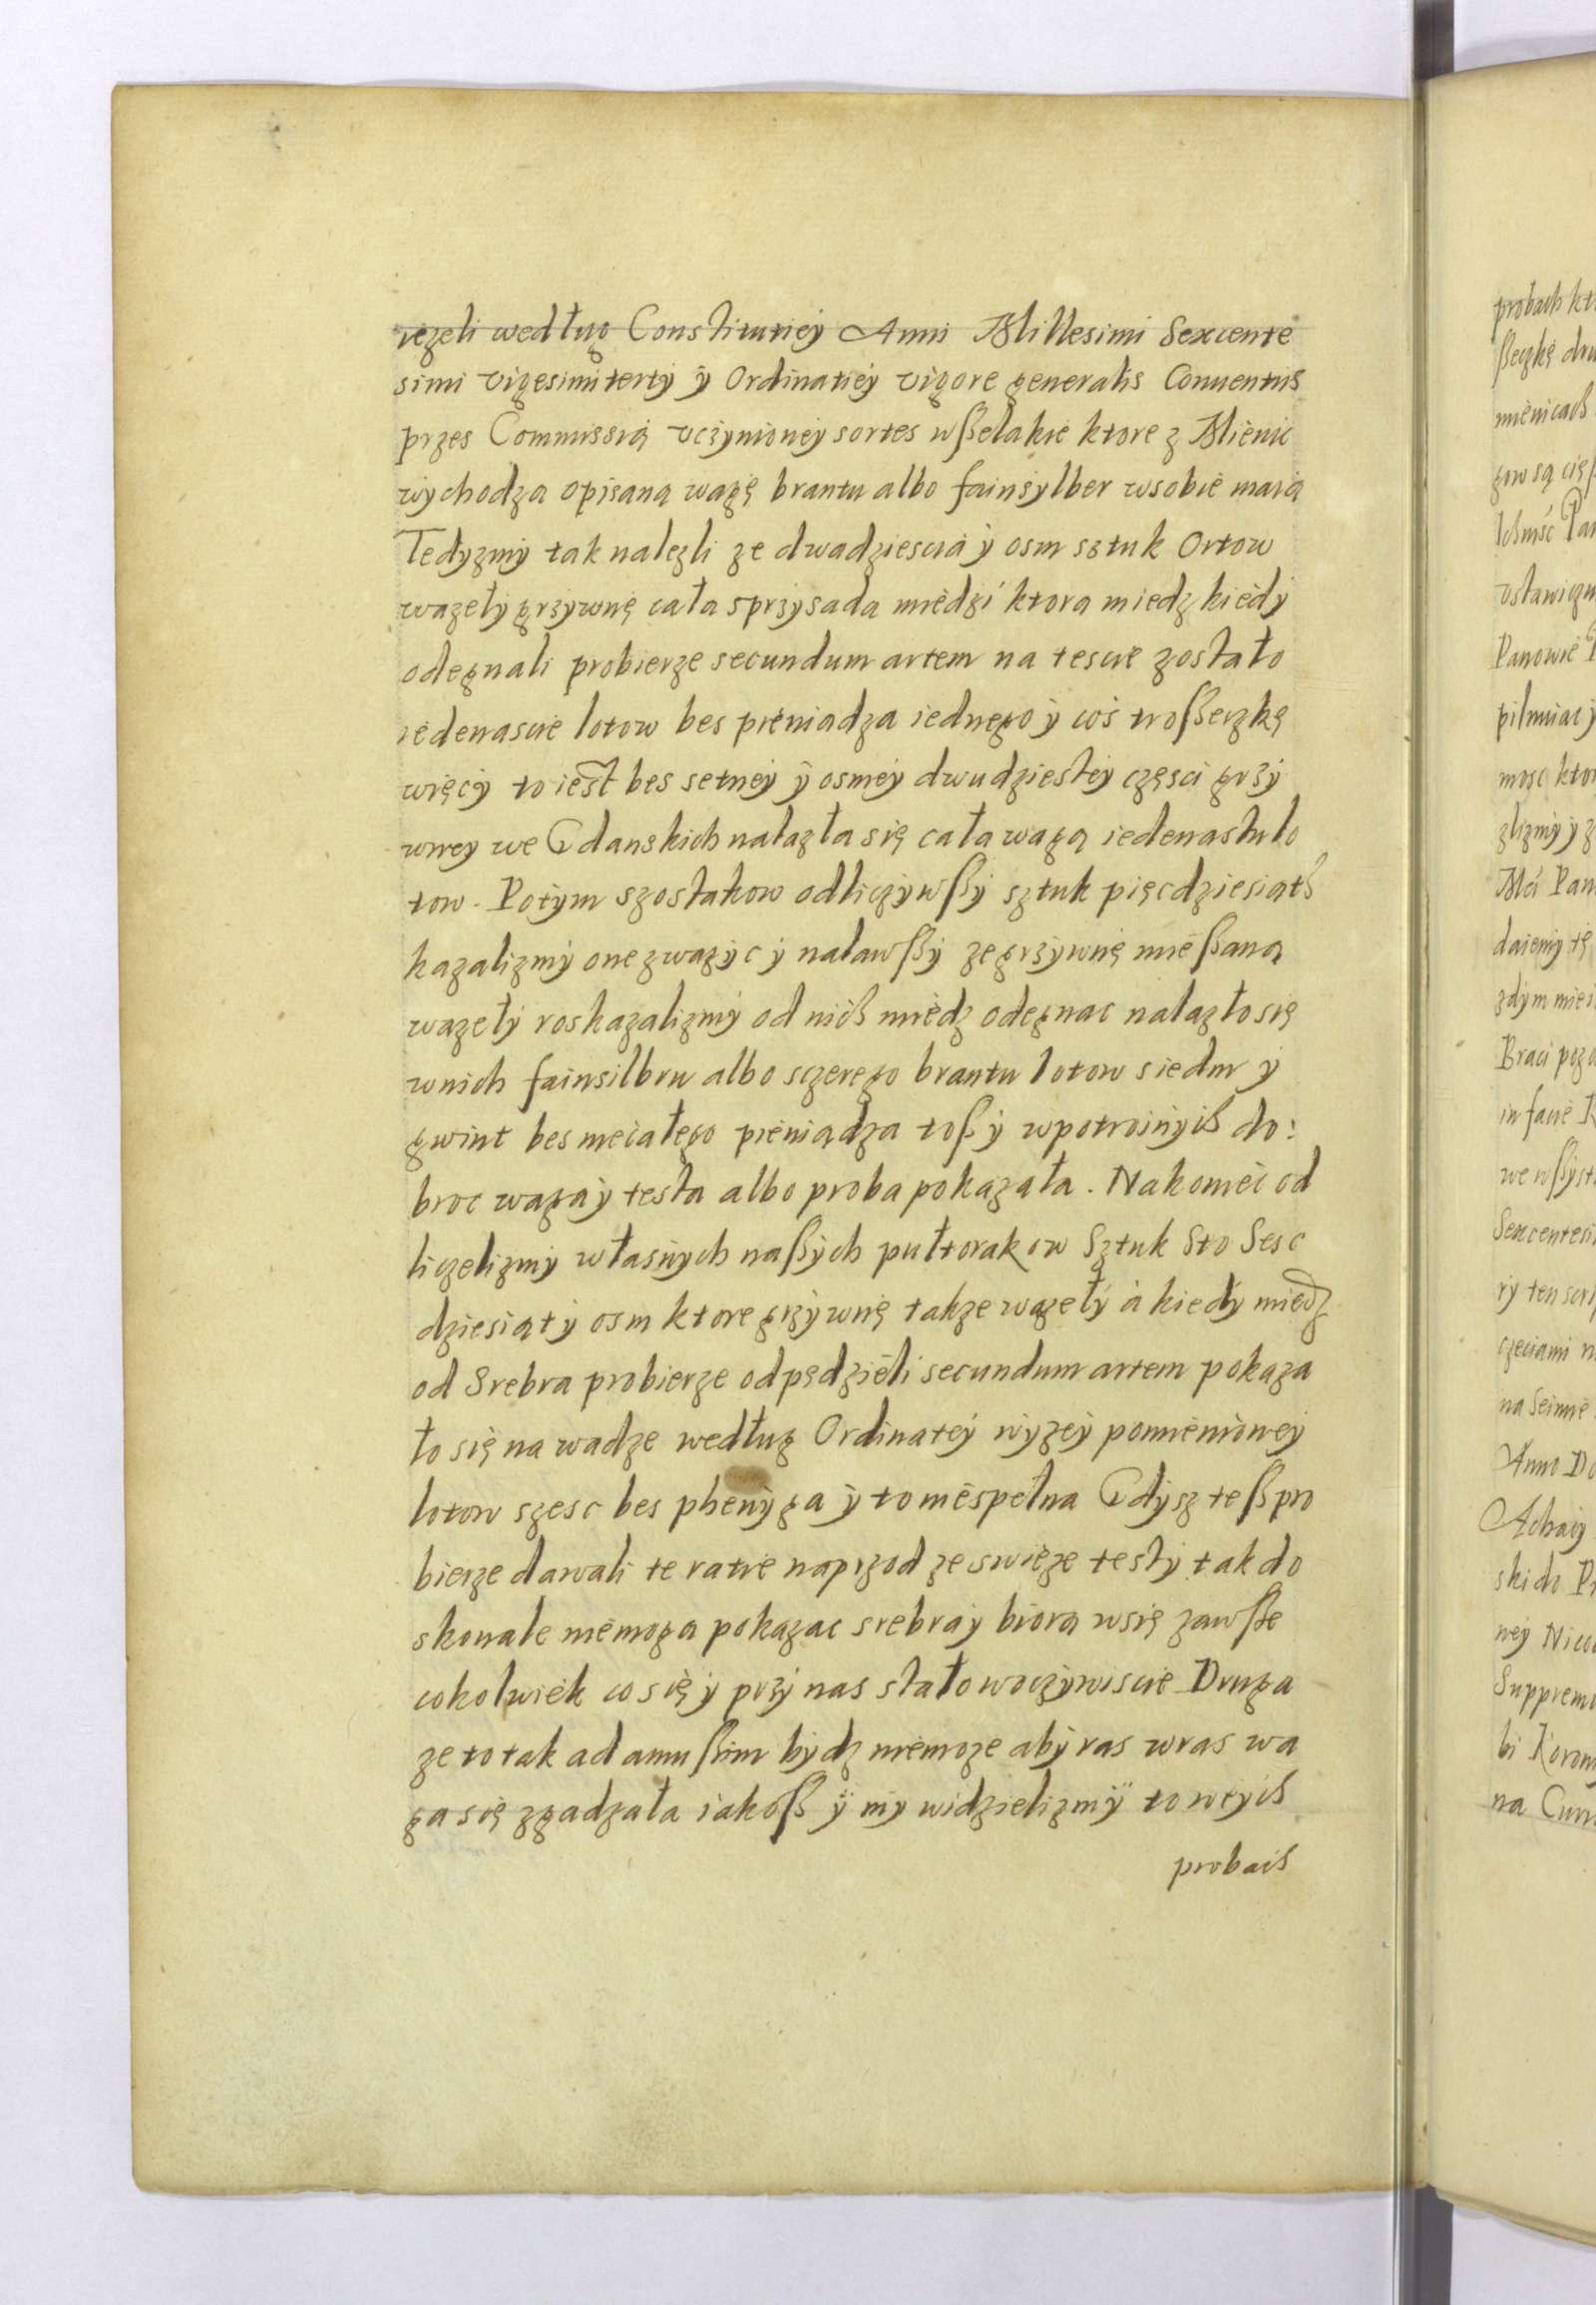 iezeli według Constitutiey Anni Millesimi Sexcente
simi vigesimi tertÿ ÿ Ordinatiey vigore generalis Conuentus
przes Commissią vczÿnioneÿ sortes wßelakie ktore z Mienic
wÿchodza opisaną wagę brantu albo fainsÿlber wsobie maią
Tedÿzmÿ tak nalezli ze dwadziescia ÿ osm sztuk Ortow
wazełÿ grzÿwnę cała sprzÿsada miedzi ktora miedz kiedÿ
odegnali probierze secundum artem na tescie zostało
iedenascie lotow bes pieniadza iednego ÿ coś troßeczkę
więcÿ to iest bes setneÿ ÿ osmeÿ dwudziesteÿ częsci grzÿ
wneÿ we Gdanskich nalazła się cała waga iedenastu lo
tow. Potÿm szostakow odliczÿwßÿ sztuk pięcdziesiąth
kazalizmÿ one zwazÿc ÿ nalawßÿ ze grzÿwnę mießaną
wazełÿ roskazalizmÿ od nich miedz odegnac nalazło się
wnich fainsilbru albo sczerego brantu lotow siedm ÿ
gwint bes niecałego pieniądza toß ÿ wpotroinÿch do:
broc waga ÿ testa albo proba pokazała. Nakoniec od
liczelizmÿ własnÿch naßÿch pułtorakow Sztuk Sto Sesc
dziesiąt ÿ osm ktore grzÿwnę takze wazełÿ à kiedÿ miedz
od Srebra probierze odpędzieli secundum artem pokaza
ło się na wadze według Ordinateÿ wÿzeÿ pomienioneÿ
lotow szesc bes phenÿga ÿ to niespełna Gdÿsz teß pro
bierze dawali te ratie naprzod ze swieze testÿ tak do
skonale niemoga pokazac srebra ÿ biora wsię zawße
cokolwiek co się ÿ przÿ nas stało woczÿwiscie Druga
ze to tak ad amußim bÿdz niemoze abÿ ras wras wa
ga się zgadzała iakoß ÿ mÿ widzielizmÿ to wtÿch
probach